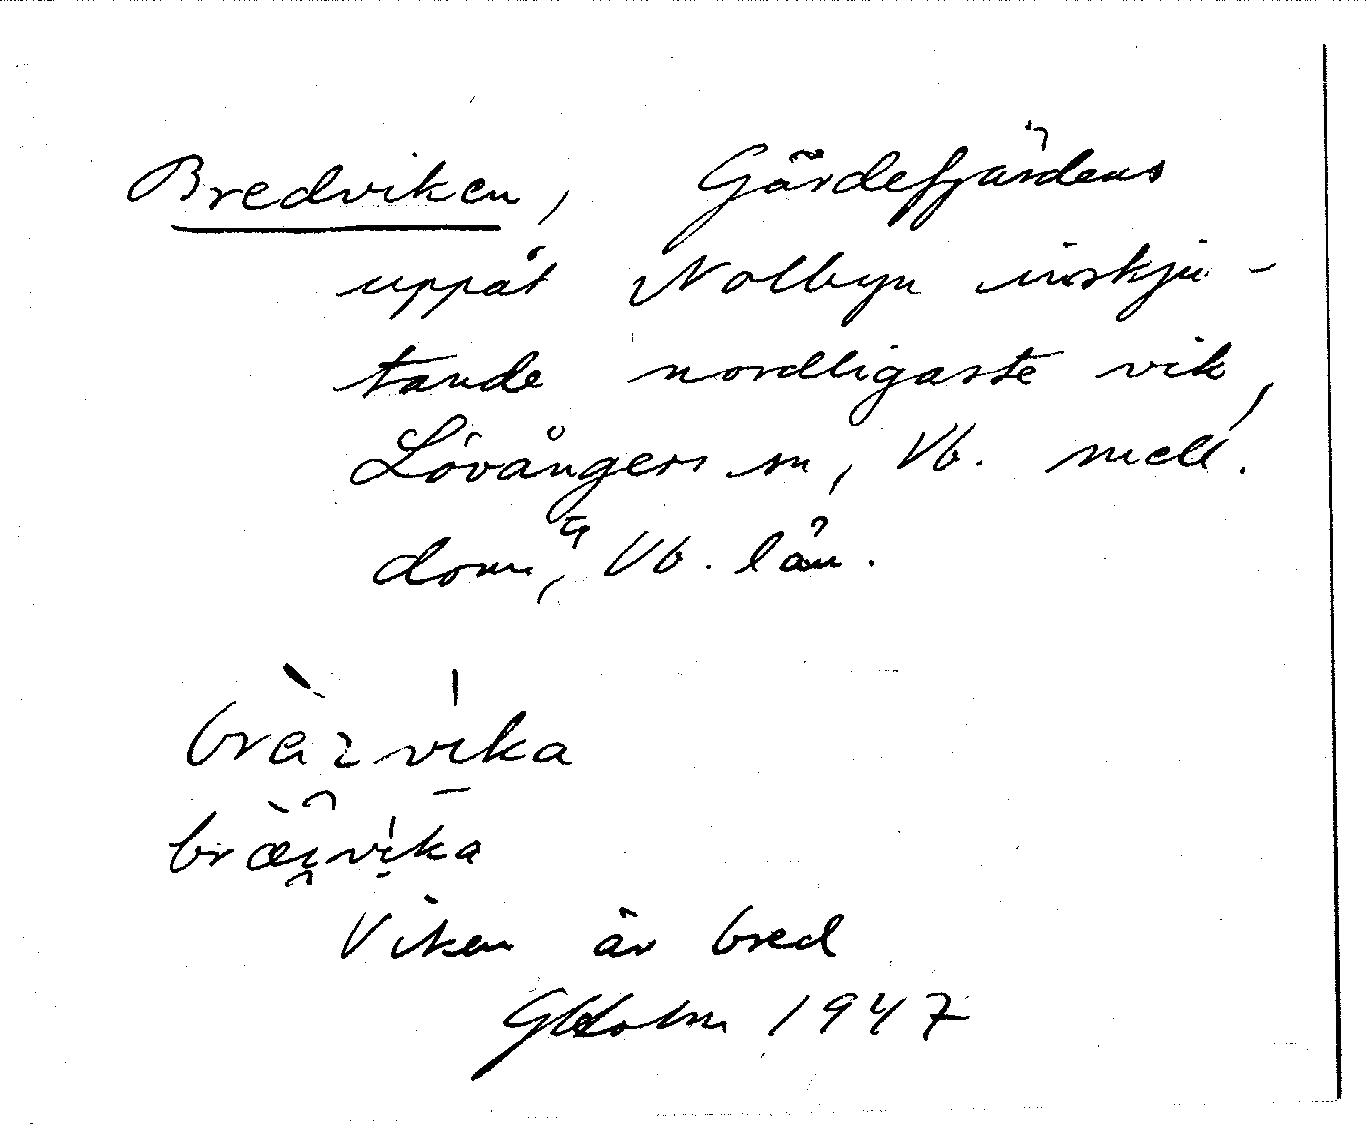 Bredviken, Gärdefjärdens
uppåt Nolbyn inskju-
tande nordligaste vik,
Lövångers sn, Vb. mell.
doms, Vb. län.
bràzvìka
Viken är bred
GHolm 1947